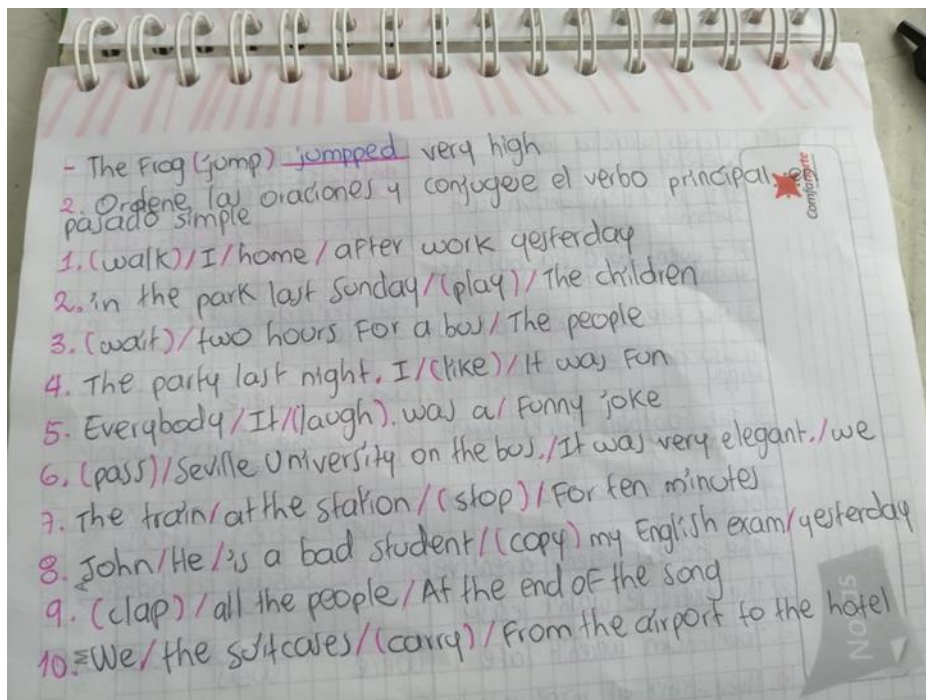 - The Frog (jump) jumpped very high
2. Ordene las oraciones y conjugese el verbo principal el
pasado simple
1. (walk)/I/home/after work yesterday
2. in the park last Sunday/(play)/The children
3. (wait)/two hours For a bus/The people
4. The party last night. I/(like)/It was Fun
5. Everybody/It/(laugh). was a/Funny joke
6. (pass)/Seville University on the bus./It was very elegant./we
7. The train/at the station/(stop)/For ten minutes
8. John/He/'s a bad student/(copy) my English exam/yesterday
9. (clap)/all the people/At the end OF the song
10. We/the suitcases/(carry)/From the airport to the hotel
Comfanorte
NOTAS